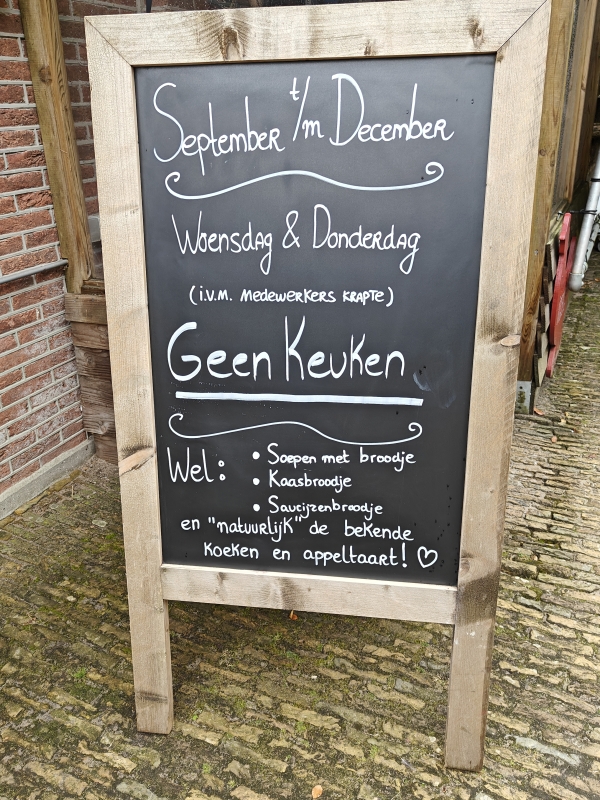 September t/m December
Woensdag & Donderdag
(i.v.m. medewerkers krapte)
Geen Keuken
Wel: • Soepen met broodje
• Kaasbroodje
• Saucijzenbroodje
en "natuurlijk" de bekende
koeken en appeltaart! ♡